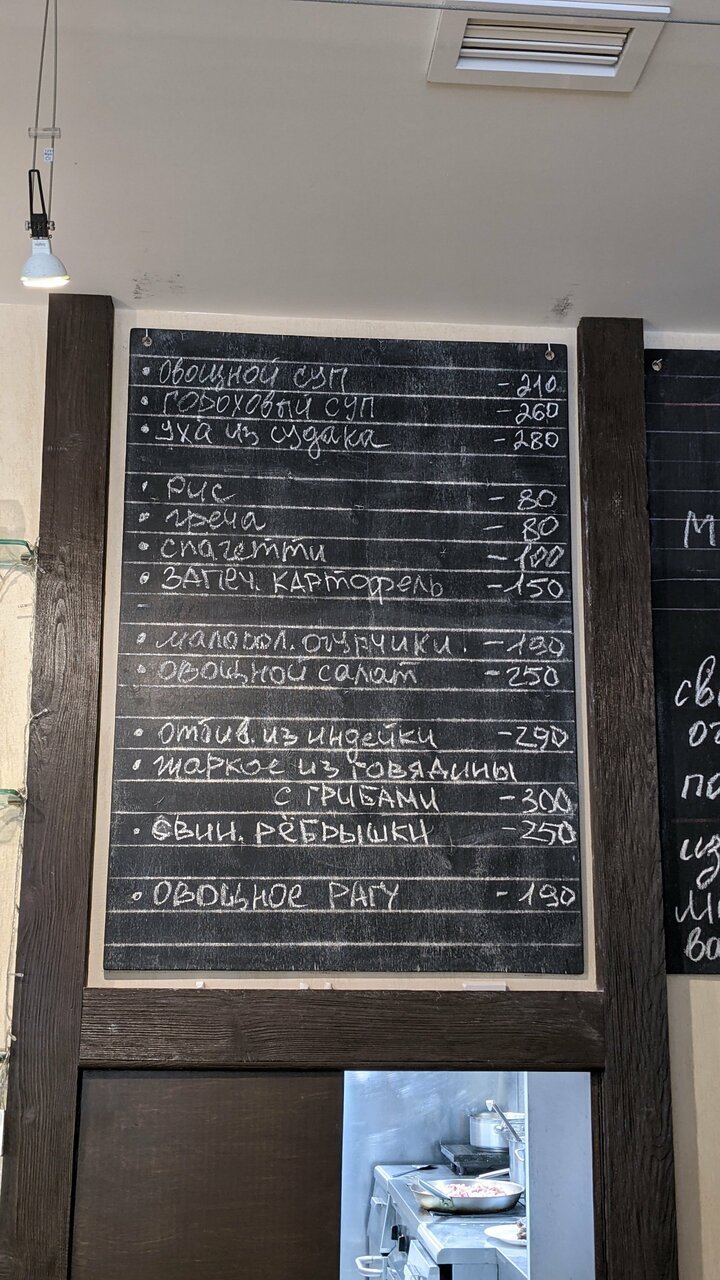 • овощной суп - 210
• гороховый суп - 260
• уха из судака - 280
• рис - 80
• греча - 80
• спагетти - 100
• ЗАПЕЧ. КАРТОФЕЛЬ - 150
• малосол. огурчики. - 190
• овощной салат - 250
• отбив. из индейки - 290
• жаркое из говядины
с ГРИБАМИ - 300
• свин. РЁБРЫШКИ - 250
• ОВОЩНОЕ РАГУ - 190